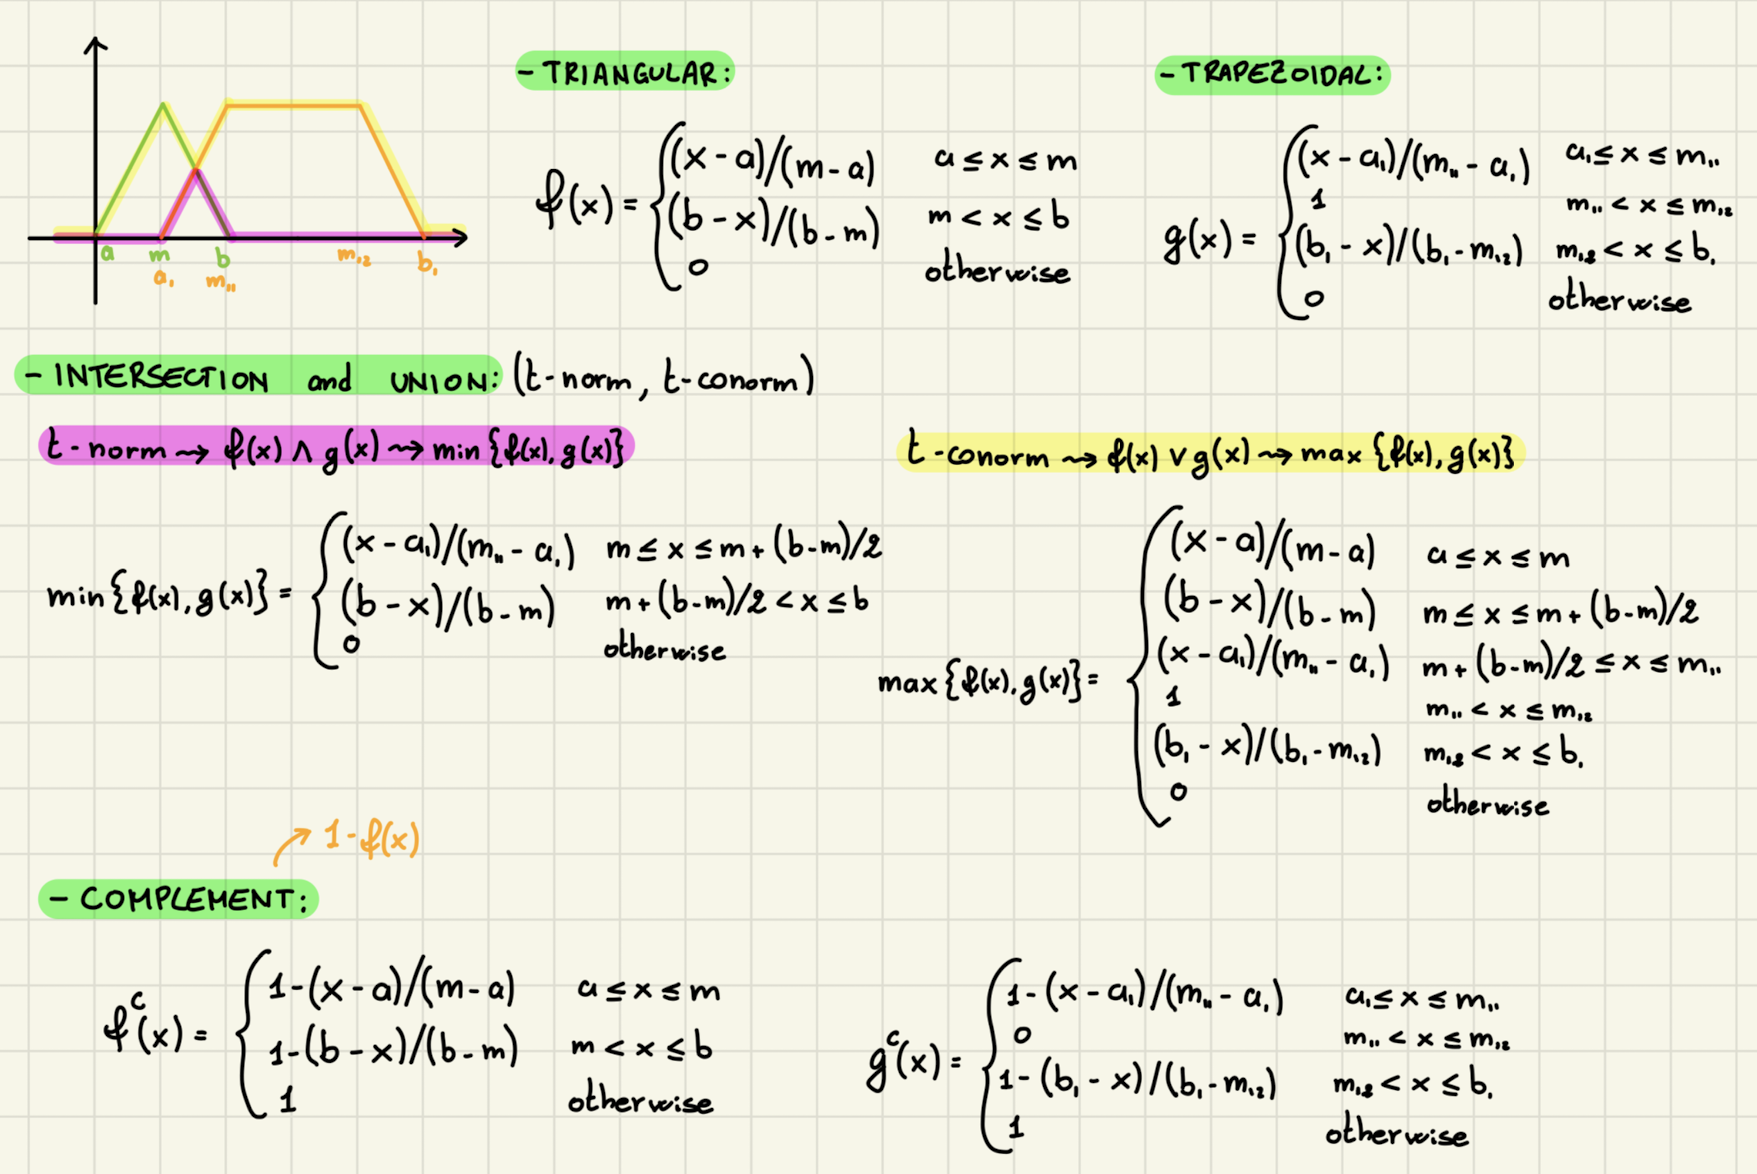 - TRIANGULAR:
f(x) = { (x - a)/(m - a)   a ≤ x ≤ m
(b - x)/(b - m)   m < x ≤ b
0   otherwise
- TRAPEZOIDAL:
g(x) = { (x - a₁)/(m₁₁ - a₁)   a₁ ≤ x ≤ m₁₁
1   m₁₁ < x ≤ m₁₂
(b₁ - x)/(b₁ - m₁₂)   m₁₂ < x ≤ b₁
0   otherwise
a m b m₁₂ b₁
a₁ m₁₁
- INTERSECTION and UNION: (t-norm, t-conorm)
t-norm ⇝ f(x) ∧ g(x) ⇝ min {f(x), g(x)}
min{f(x), g(x)} = { (x - a₁)/(m₁₁ - a₁)   m ≤ x ≤ m + (b-m)/2
(b - x)/(b - m)   m + (b-m)/2 < x ≤ b
0   otherwise
t-conorm ⇝ f(x) ∨ g(x) ⇝ max {f(x), g(x)}
max{f(x), g(x)} = { (x - a)/(m - a)   a ≤ x ≤ m
(b - x)/(b - m)   m ≤ x ≤ m + (b-m)/2
(x - a₁)/(m₁₁ - a₁)   m + (b-m)/2 ≤ x ≤ m₁₁
1   m₁₁ < x ≤ m₁₂
(b₁ - x)/(b₁ - m₁₂)   m₁₂ < x ≤ b₁
0   otherwise
1 - f(x)
- COMPLEMENT:
fᶜ(x) = { 1-(x - a)/(m - a)   a ≤ x ≤ m
1-(b - x)/(b - m)   m < x ≤ b
1   otherwise
gᶜ(x) = { 1-(x - a₁)/(m₁₁ - a₁)   a₁ ≤ x ≤ m₁₁
0   m₁₁ < x ≤ m₁₂
1-(b₁ - x)/(b₁ - m₁₂)   m₁₂ < x ≤ b₁
1   otherwise